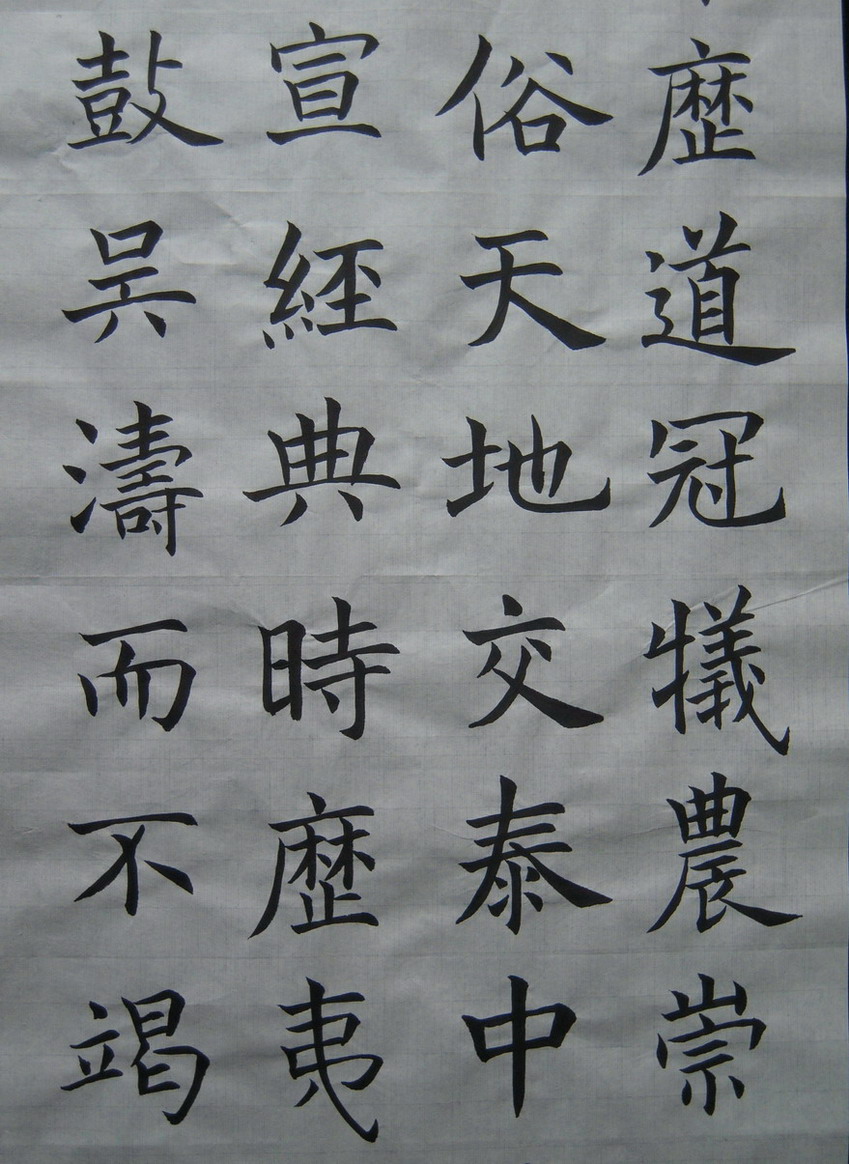 歷道冠犧農崇
俗天地交泰中
宣經典時歷夷
鼓吴濤而不竭